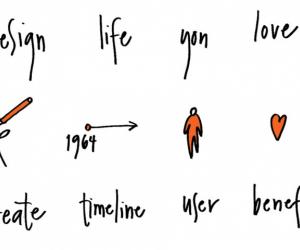 esign life you love
1964
reate timeline user benef